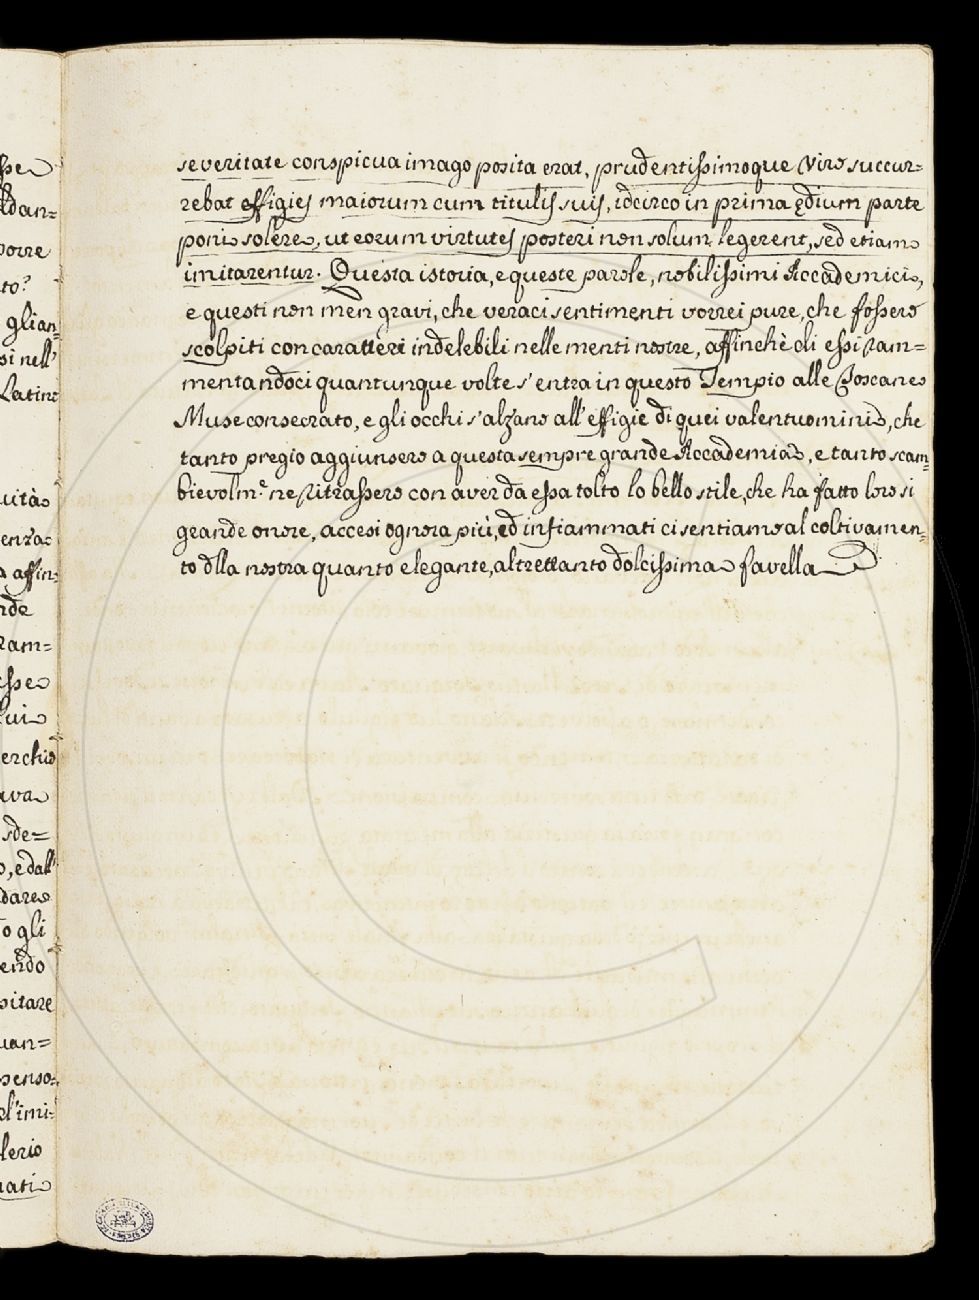 severitate conspicua imago posita erat, prudentissimoque Viro succur=
rebat effigies maiorum cum titulis suis, idcirco in prima ędium parte
poni solere, ut eorum virtutes posteri non solum legerent, sed etiam
imitarentur. Questa istoria, e queste parole, nobilissimi Accademici,
e questi non men gravi, che veraci sentimenti vorrei pure, che fossero
scolpiti con caratteri indelebili nelle menti nostre, affinchè di essi ram=
mentandoci quantunque volte s'entra in questo Tempio alle Toscane
Muse consecrato, e gli occhi s'alzano all'effigie di quei valentuomini, che
tanto pregio aggiunsero a questa sempre grande Accademia, e tanto scam=
bievolm.e ne ritrassero con aver da essa tolto lo bello stile, che ha fatto loro sì
grande onore, accesi ognora più, ed infiammati ci sentiamo al coltivamen=
to dlla nostra quanto elegante, altrettanto dolcissima favella
sse
dan=
porre
to?
glian=
si nell'
Latin
vità
enza
affin=
nde
ram=
esse
lui
erchio
ava
sde=
o, e dall'
dare
o gli
endo
sitare
uan=
penso=
el'imi=
lerio
uati